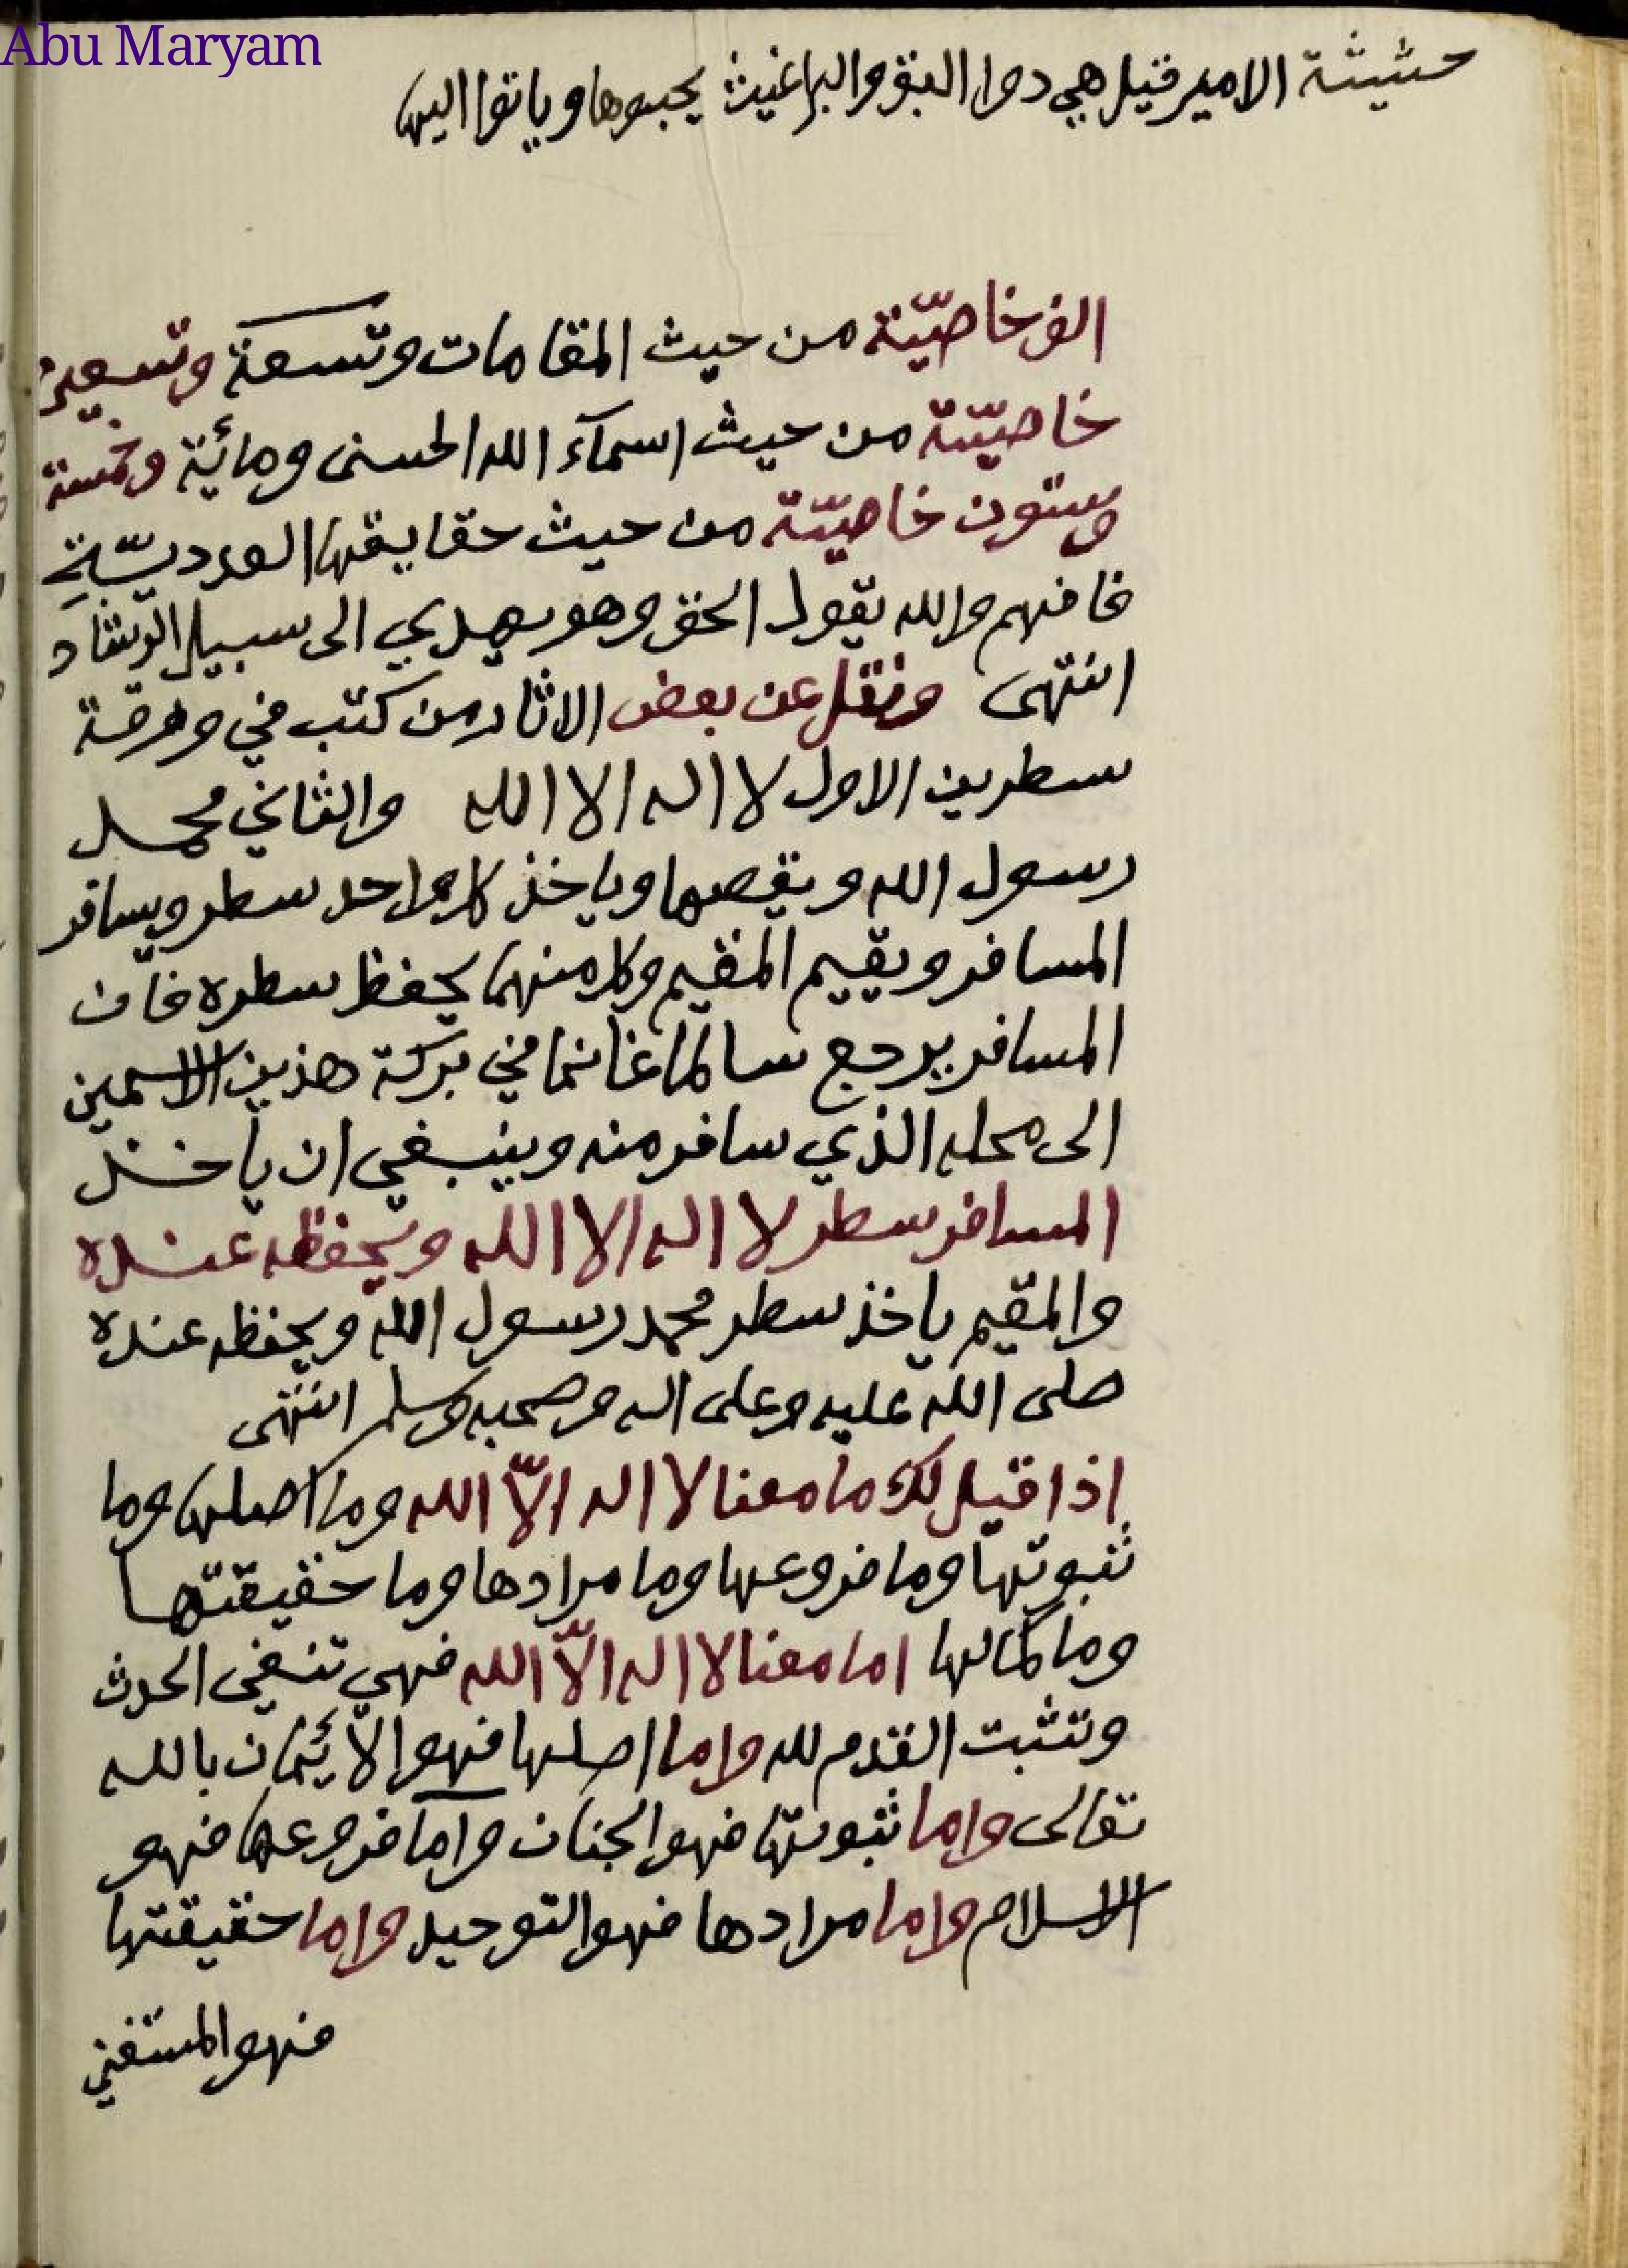 Abu Maryam
حشيشة الامير قيل هي دوا البق والبراغيث يحبوها وياتوا اليها
الف خاصيّة من حيث المقامات وتسعة وتسعين
خاصيّة من حيث اسمآء الله الحسنى ومائية وخمسة
وستون خاصيّة من حيث حقايقها العدديّة
فافهم والله يقول الحق وهو يهدي الى سبيل الرشاد
انتهى ونقل عن بعض الاثار من كتب في ورقة
سطرين الاول لا اله الا الله والثاني محمد
رسول الله ويقصها وياخذ كل واحد سطر ويسافر
المسافر ويقيم المقيم وكل منهما يحفظ سطره فان
المسافر يرجع سالما غانما في بركة هذين الاسمين
الى محله الذي سافر منه وينبغي ان يأخذ
المسافر سطر لا اله الا الله ويحفظه عنده
والمقيم ياخذ سطر محمد رسول الله ويحفظه عنده
صلى الله عليه وعلى اله وصحبه وسلم انتهى
إذا قيل لك ما معنا لا اله الاّ الله وما اصلها وما
ثبوتها وما فروعها وما مرادها وما حقيقتها
وما كمالها اما معنا لا اله الاّ الله فهي تنفي الحدث
وتثبت القدم لله واما اصلها فهو الائيمان بالله
تعالى واما ثبوتها فهو الجنان وآما فروعها فهو
الاسلام واما مرادها فهو التوحيد واما حقيقتها
فهو المستغني